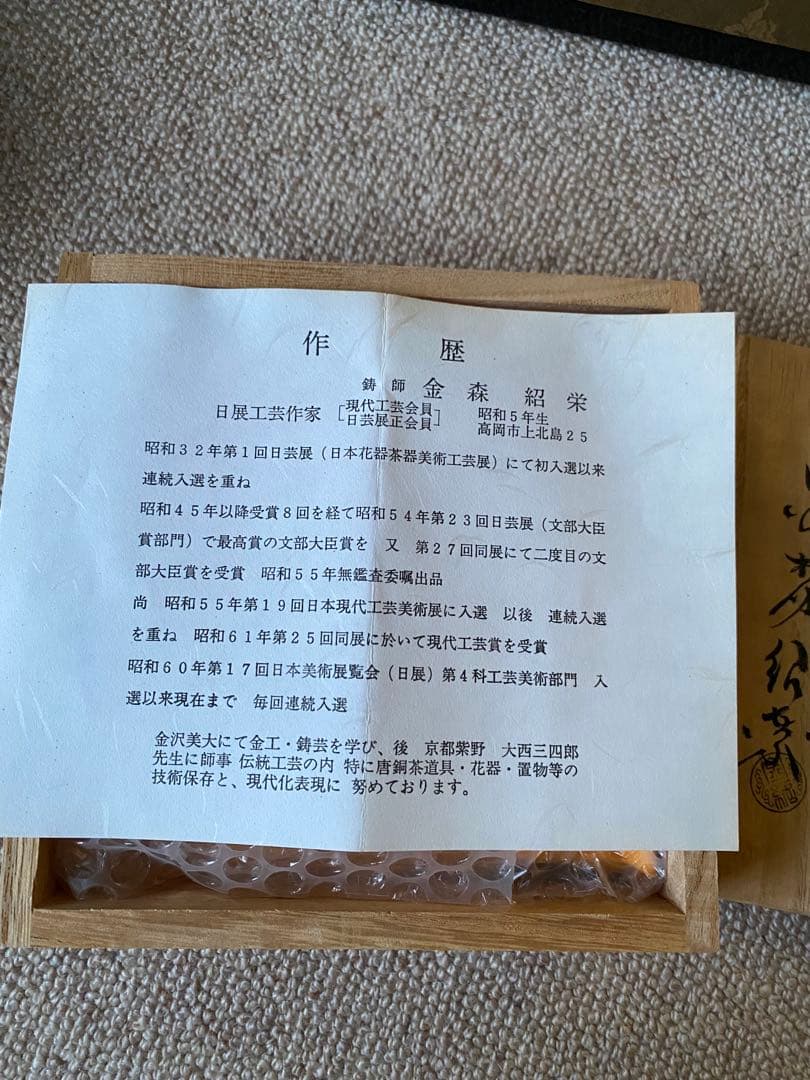 作 歴
鋳師 金森紹栄
日展工芸作家 [現代工芸会員 日芸展正会員] 昭和5年生 高岡市上北島25
昭和32年第1回日芸展(日本花器茶器美術工芸展)にて初入選以来
連続入選を重ね
昭和45年以降受賞8回を経て昭和54年第23回日芸展(文部大臣
賞部門)で最高賞の文部大臣賞を 又 第27回同展にて二度目の文
部大臣賞を受賞 昭和55年無鑑査委嘱出品
尚 昭和55年第19回日本現代工芸美術展に入選 以後 連続入選
を重ね 昭和61年第25回同展に於いて現代工芸賞を受賞
昭和60年第17回日本美術展覧会(日展)第4科工芸美術部門 入
選以来現在まで 毎回連続入選
金沢美大にて金工・鋳芸を学び、後 京都紫野 大西三四郎
先生に師事 伝統工芸の内 特に唐銅茶道具・花器・置物等の
技術保存と、現代化表現に 努めております。